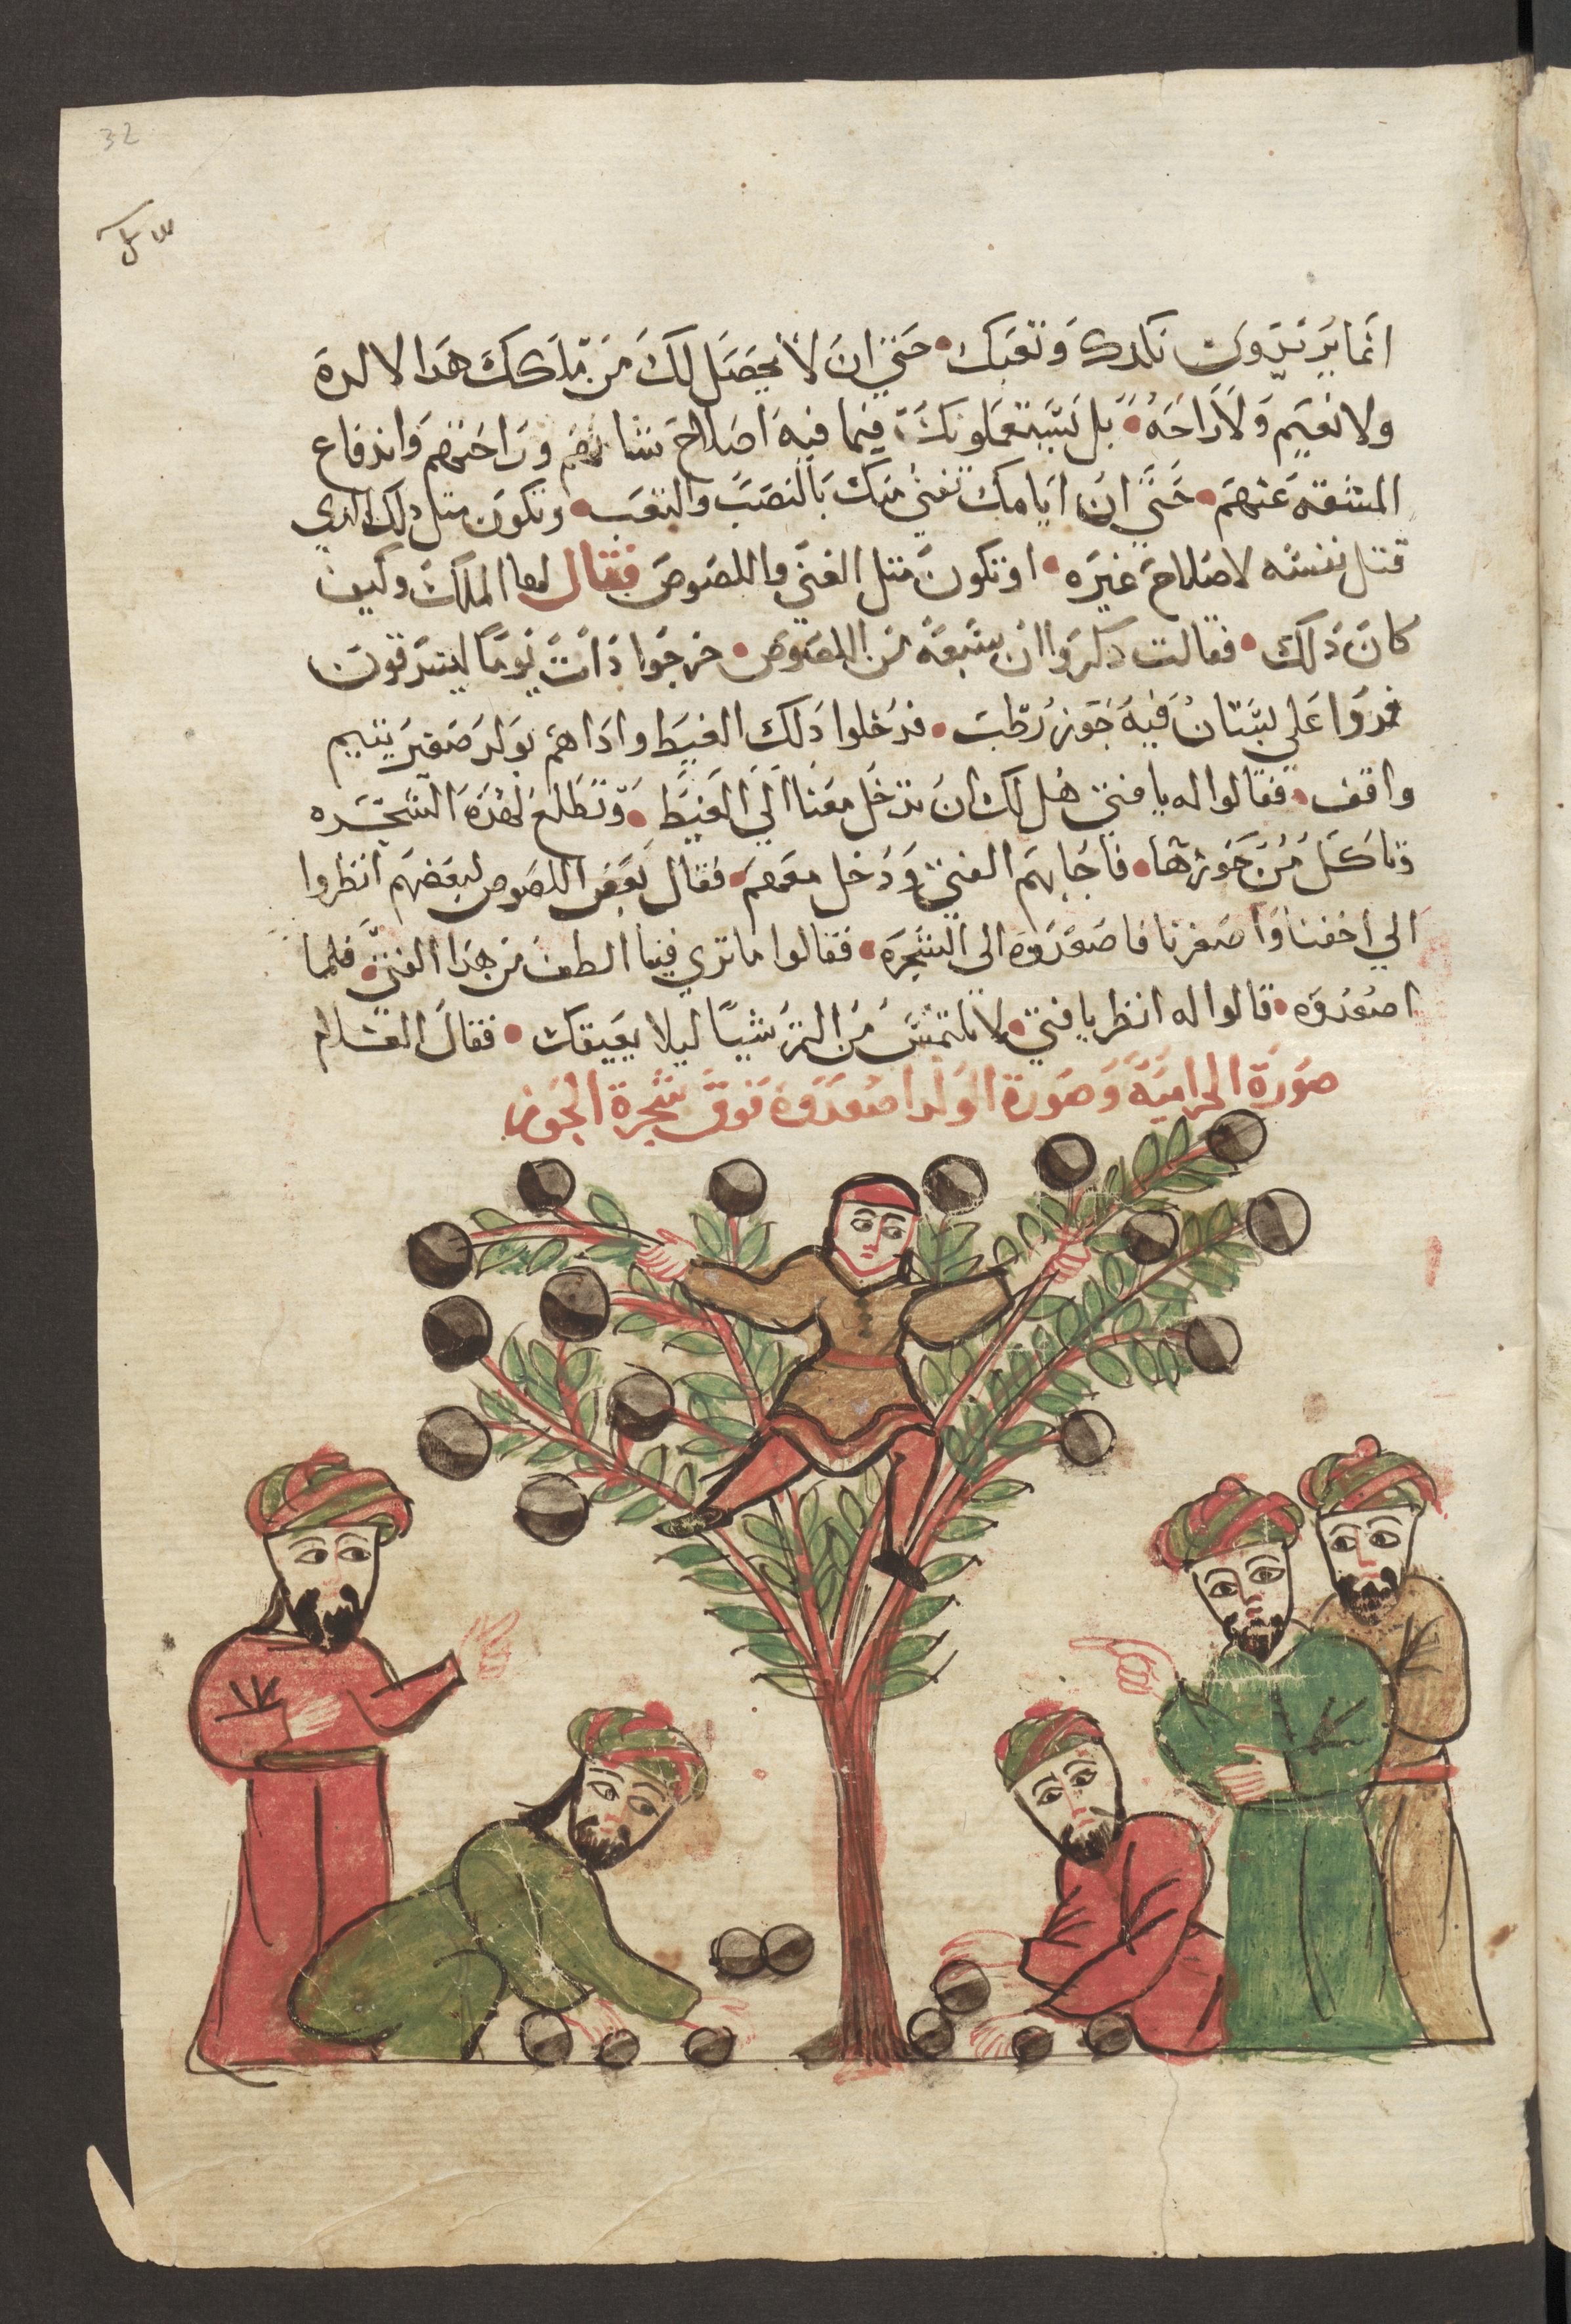 32
انما يريدون نكدك وتعبك • حتي ان لا يحصل لك من ملكك هدا لا لدة
ولا نعيم ولا راحة • بل يستعملونك فيما فيه اصلاح شانهم وراحتهم واندفاع
المشقة عنهم • حتي ان ايامك تفني منك بالنصب والتعب • وتكون متل دلك الدي
قتل نفسه لاصلاح غيره • او تكون متل الفتي واللصوص فقال لها الملك وكيف
كان دلك • فقالت دكروا ان سبعة من اللصوص • خرجوا دات يوما ليسرقون
فمروا علي بستان فيه جوز رطب • فدخلوا دلك الغيط وادا هم بولد صغير يتيم
واقف • فقالوا له يا فتي هل لك ان تدخل معنا الي الغيط • وتطلع لهده الشجره
وتاكل من جوزها • فاجابهم الفتي ودخل معهم • فقال بعض اللصوص لبعضهم انظروا
الي اخفنا واصغرنا فاصعدوه الي الشجره • فقالوا ما نري فينا الطف من هدا الفتي • فلما
اصعدوه • قالوا له انظر يا فتي • لا تلتمس من التمر شيا ليلا يعيقك • فقال الغلام
صورة الحرامية وصورة الولد اصعدوة فوق شجرة الجوز